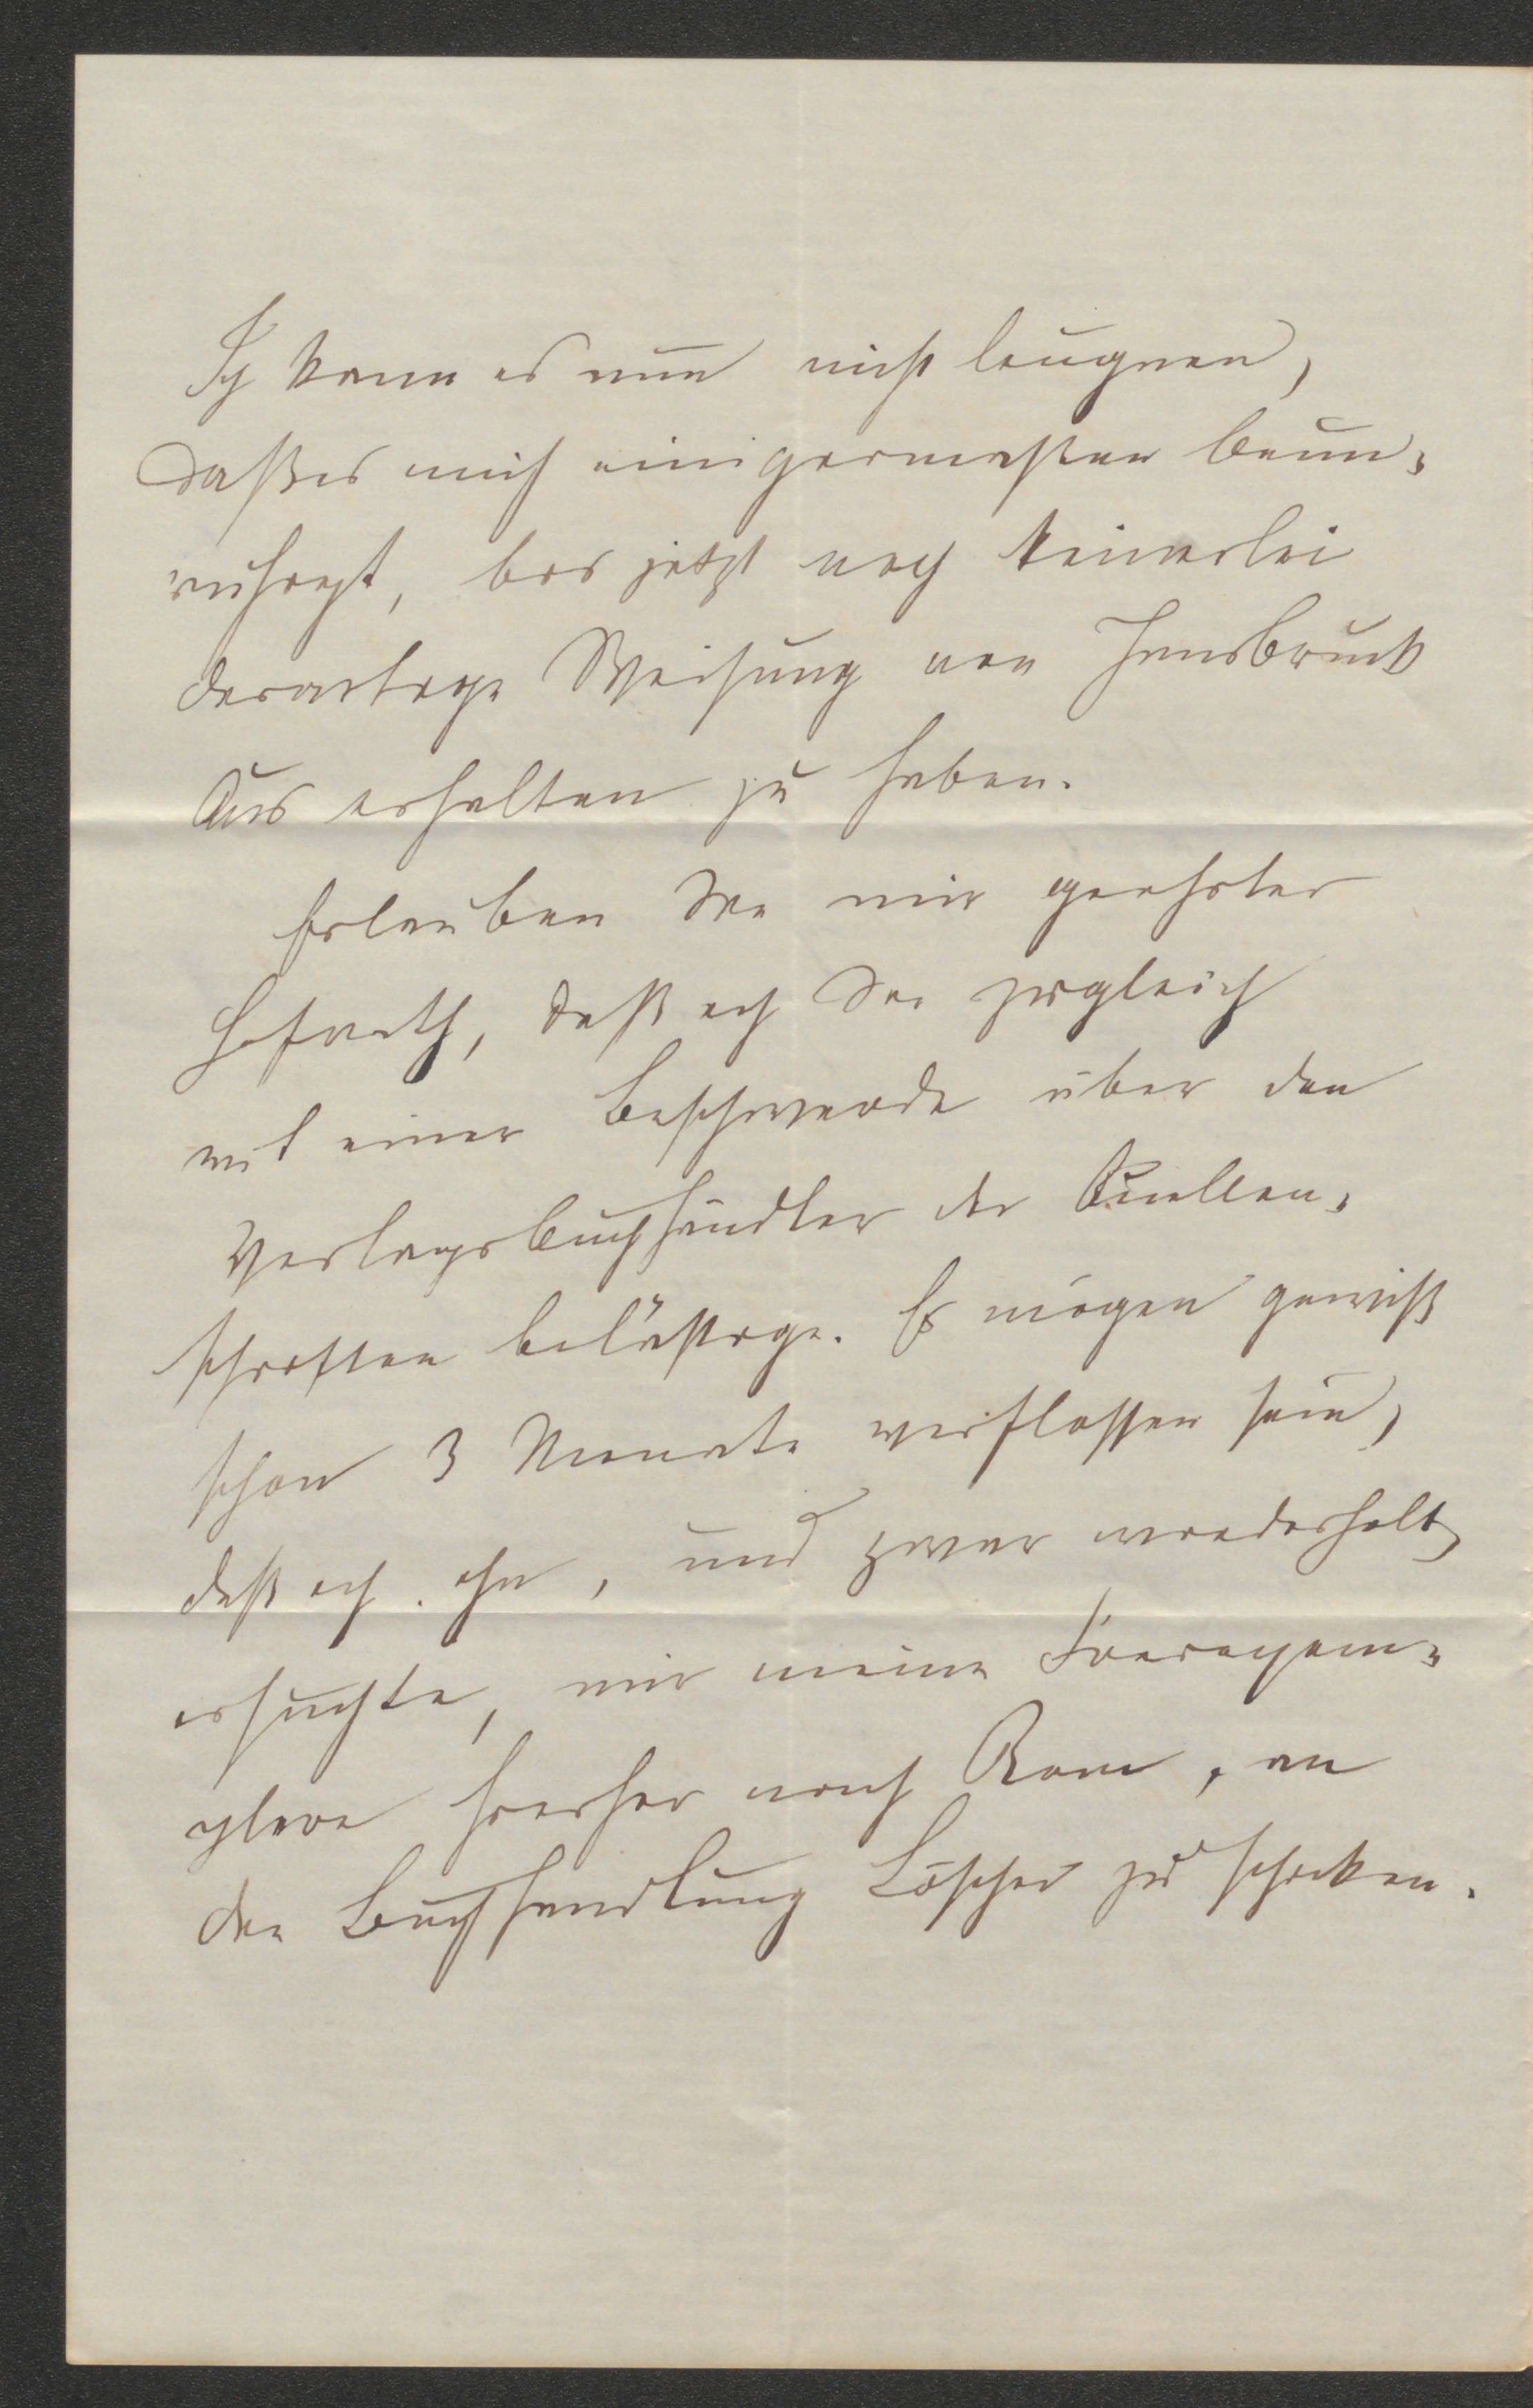 Ich kann es nun nicht leugnen,
daß es mich einigermaßen beun-
ruhigt, bis jetzt noch keinerlei
derartige Weisung von Innsbruck
aus erhalten zu haben.
Erlauben Sie mir geehrter
Hofrath, daß ich Sie zugleich
mit einer Beschwerde über den
Verlagsbuchhändler der Quellen-
schriften belästige. Es mögen gewiß
schon 3 Monate verflossen sein,
daß ich ihn, und zwar wiederholt,
ersuchte, mir meine Freiexem-
plare hierher nach Rom, an
die Buchhandlung Löscher zu schicken.